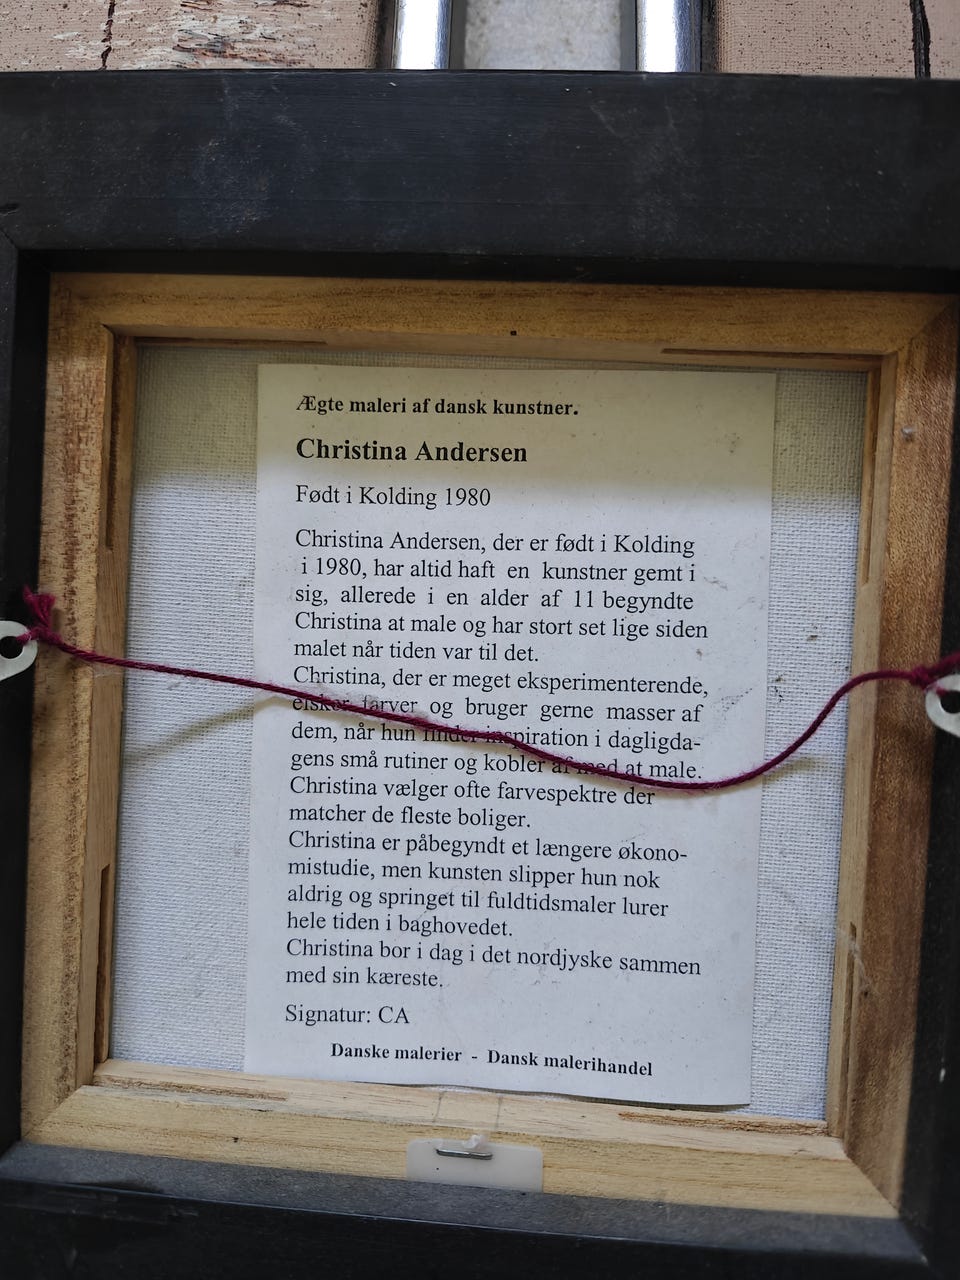 Ægte maleri af dansk kunstner.
Christina Andersen
Født i Kolding 1980
Christina Andersen, der er født i Kolding
i 1980, har altid haft en kunstner gemt i
sig, allerede i en alder af 11 begyndte
Christina at male og har stort set lige siden
malet når tiden var til det.
Christina, der er meget eksperimenterende,
elsker farver og bruger gerne masser af
dem, når hun finder inspiration i dagligda-
gens små rutiner og kobler af med at male.
Christina vælger ofte farvespektre der
matcher de fleste boliger.
Christina er påbegyndt et længere økono-
mistudie, men kunsten slipper hun nok
aldrig og springet til fuldtidsmaler lurer
hele tiden i baghovedet.
Christina bor i dag i det nordjyske sammen
med sin kæreste.
Signatur: CA
Danske malerier - Dansk malerihandel